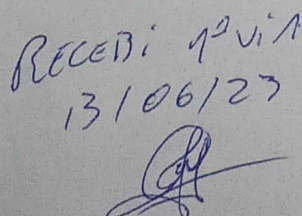 RECEBi 1ª ViA
13/06/23